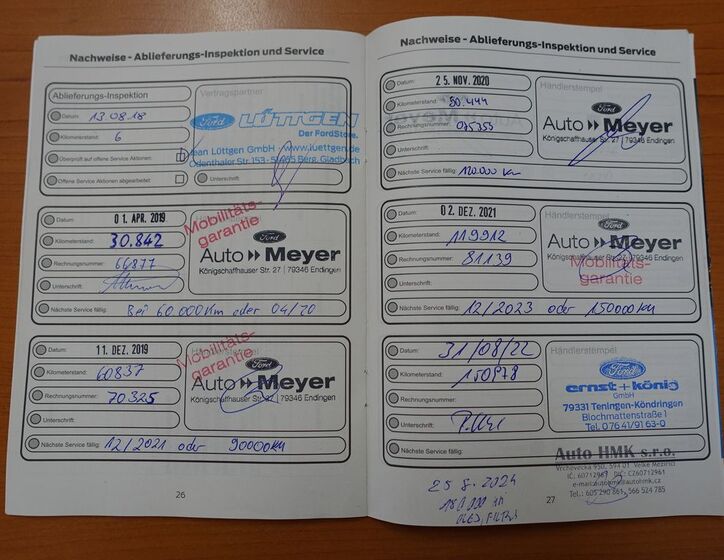 Nachweise - Ablieferungs-Inspektion und Service
Ablieferungs-Inspektion
Datum: 13 08 18
Kilometerstand: 6
Überprüft auf offene Service Aktionen:
Offene Service Aktionen abgearbeitet:
Vertragspartner
Ford LÜTTGEN
Der FordStore.
Jean Lüttgen GmbH · www.luettgen.de
Odenthaler Str. 153 - 51465 Berg. Gladbach
Unterschrift:
Datum: 01. APR. 2019
Kilometerstand: 30.842
Rechnungsnummer: 66877
Unterschrift:
Nächste Service fällig: Bei 60.000 Km oder 04/20
Mobilitäts-
garantie
Ford
Auto Meyer
Königschaffhauser Str. 27 | 79346 Endingen
Datum: 11. DEZ. 2019
Kilometerstand: 60837
Rechnungsnummer: 70325
Unterschrift:
Nächste Service fällig: 12/2021 oder 90000 KM
Mobilitäts-
garantie
Händlerstempel
Ford
Auto Meyer
Königschaffhauser Str. 27 | 79346 Endingen
26
Nachweise - Ablieferungs-Inspektion und Service
Datum: 25. NOV. 2020
Kilometerstand: 90.444
Rechnungsnummer: 075355
Unterschrift:
Nächste Service fällig: 120.000 Km
Händlerstempel
Ford
Auto Meyer
Königschaffhauser Str. 27 | 79346 Endingen
Datum: 02. DEZ. 2021
Kilometerstand: 119912
Rechnungsnummer: 81139
Unterschrift:
Nächste Service fällig: 12/2023 oder 150000 KM
Händlerstempel
Ford
Auto Meyer
Königschaffhauser Str. 27 | 79346 Endingen
Mobilitäts-
garantie
Datum: 31/08/22
Kilometerstand: 150978
Rechnungsnummer:
Unterschrift:
Nächste Service fällig:
Händlerstempel
Ford
ernst+könig
GmbH
79331 Teningen-Köndringen
Blochmattenstraße 1
Tel. 0 76 41/91 63-0
Auto HMK s.r.o.
Vrchovecká 950, 594 01 Velké Meziříčí
Tel.: 605 290 861, 566 524 785
25 8. 2024
27